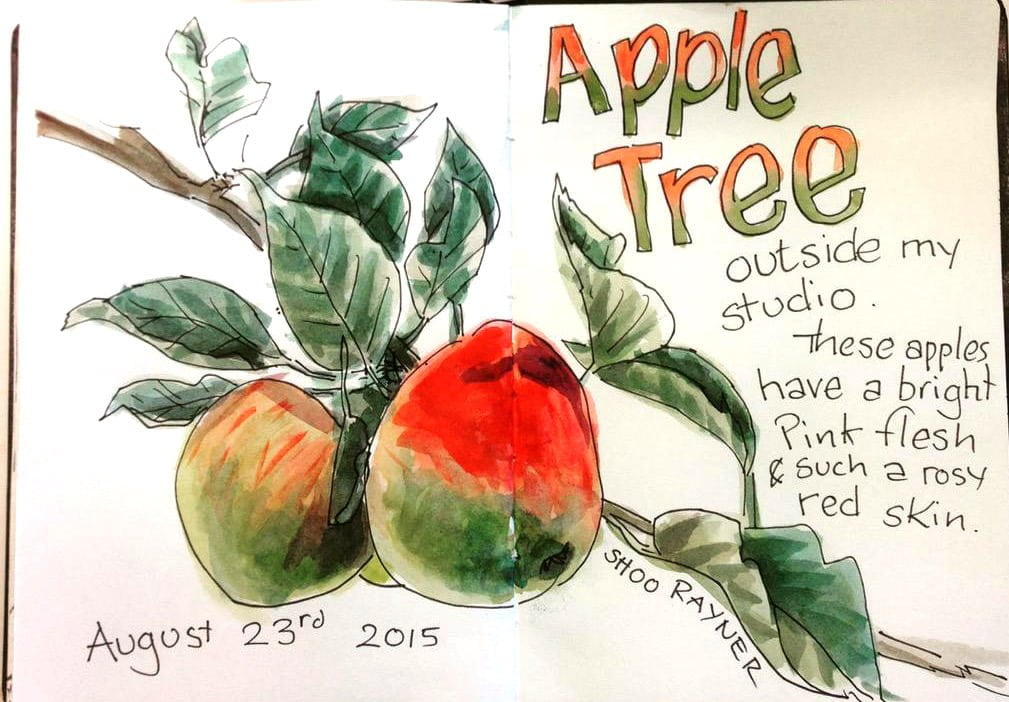 Apple
Tree
outside my
studio.
These apples
have a bright
Pink flesh
& such a rosy
red skin.
SHOO RAYNER
August 23rd 2015